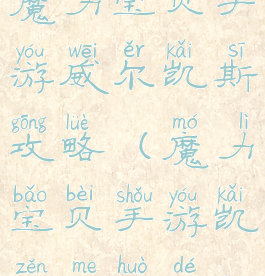 魔力宝贝手
yóu wēi ěr kǎi sī
游威尔凯斯
gōng lüè mó lì
攻略(魔力
bǎo bèi shǒu yóu kǎi
宝贝手游凯
zěn me huò dé